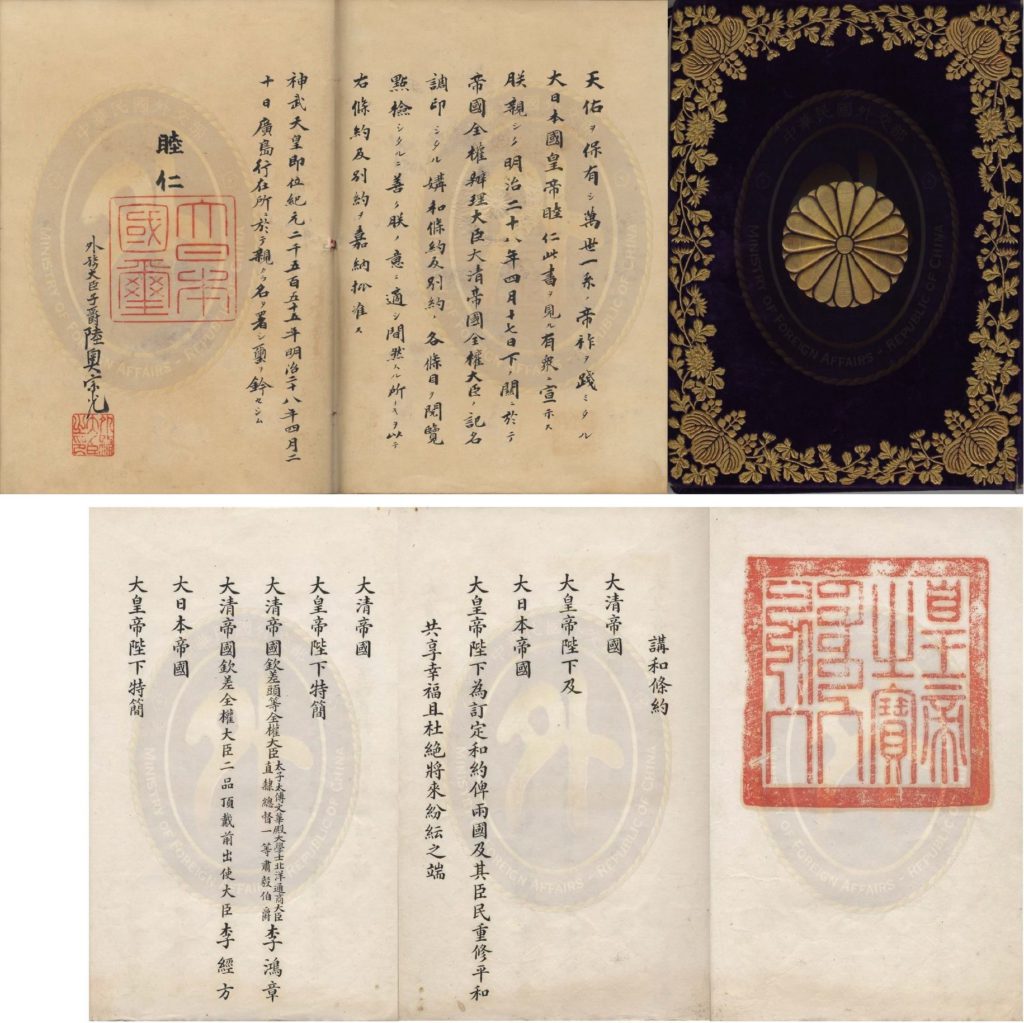 天佑ヲ保有シ萬世一系ノ帝祚ヲ踐ミタル
大日本國皇帝睦仁此書ヲ見ル有衆ニ宣示ス
朕親シク明治二十八年四月十七日下ノ關ニ於テ
帝國全權辦理大臣大清帝國全權大臣ノ記名
調印シタル媾和條約及別約ノ各條目ヲ閲覽
點檢シタルニ善ク朕ノ意ニ適シ間然スル所ナキヲ以テ
右條約及別約ヲ嘉納批准ス
神武天皇即位紀元二千五百五十五年明治二十八年四月二
十日廣島行在所ニ於テ親ラ名ヲ署シ璽ヲ鈐セシム
睦仁
大日本
國璽
外務大臣子爵陸奥宗光
MINISTRY OF FOREIGN AFFAIRS - REPUBLIC OF CHINA
皇帝
之寶
講和條約
大清帝國
大皇帝陛下及
大日本帝國
大皇帝陛下為訂定和約俾兩國及其臣民重修平和
共享幸福且杜絕將來紛紜之端
大清帝國
大皇帝陛下特簡
大清帝國欽差頭等全權大臣太子太傅文華殿大學士北洋通商大臣直隸總督一等肅毅伯爵李鴻章
大清帝國欽差全權大臣二品頂戴前出使大臣李經方
大日本帝國
大皇帝陛下特簡
MINISTRY OF FOREIGN AFFAIRS - REPUBLIC OF CHINA